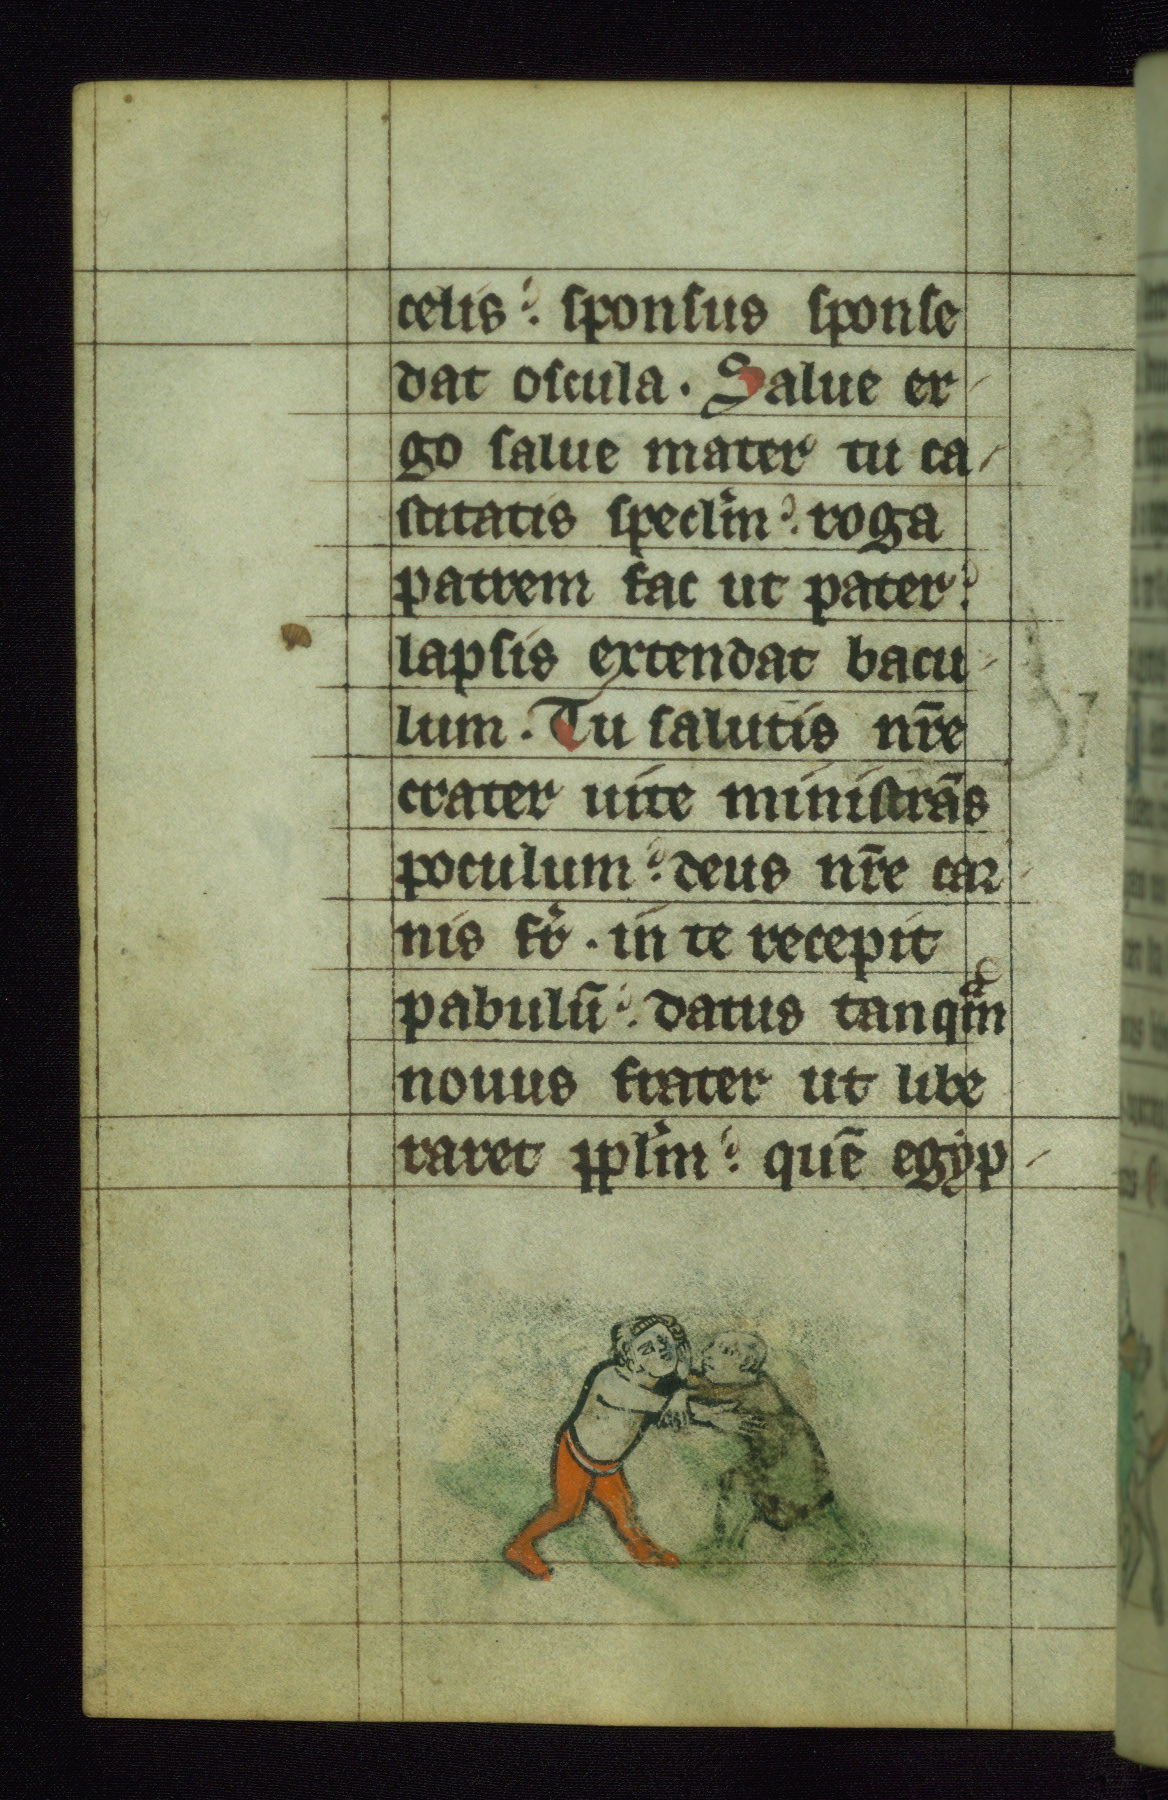 celis : sponsus sponse
dat oscula . Salue er
go salue mater tu ca
stitatis speclm̄ : roga
patrem fac ut pater :
lapsis extendat bacu
lum . Tu salutis nr̄e
crater uite ministrās
poculum : deus nr̄e car
nis fr̄ . in te recepit
pabulū : datus tanqᵃm
nouus frater ut libe
raret pplm̄ : quē egyp